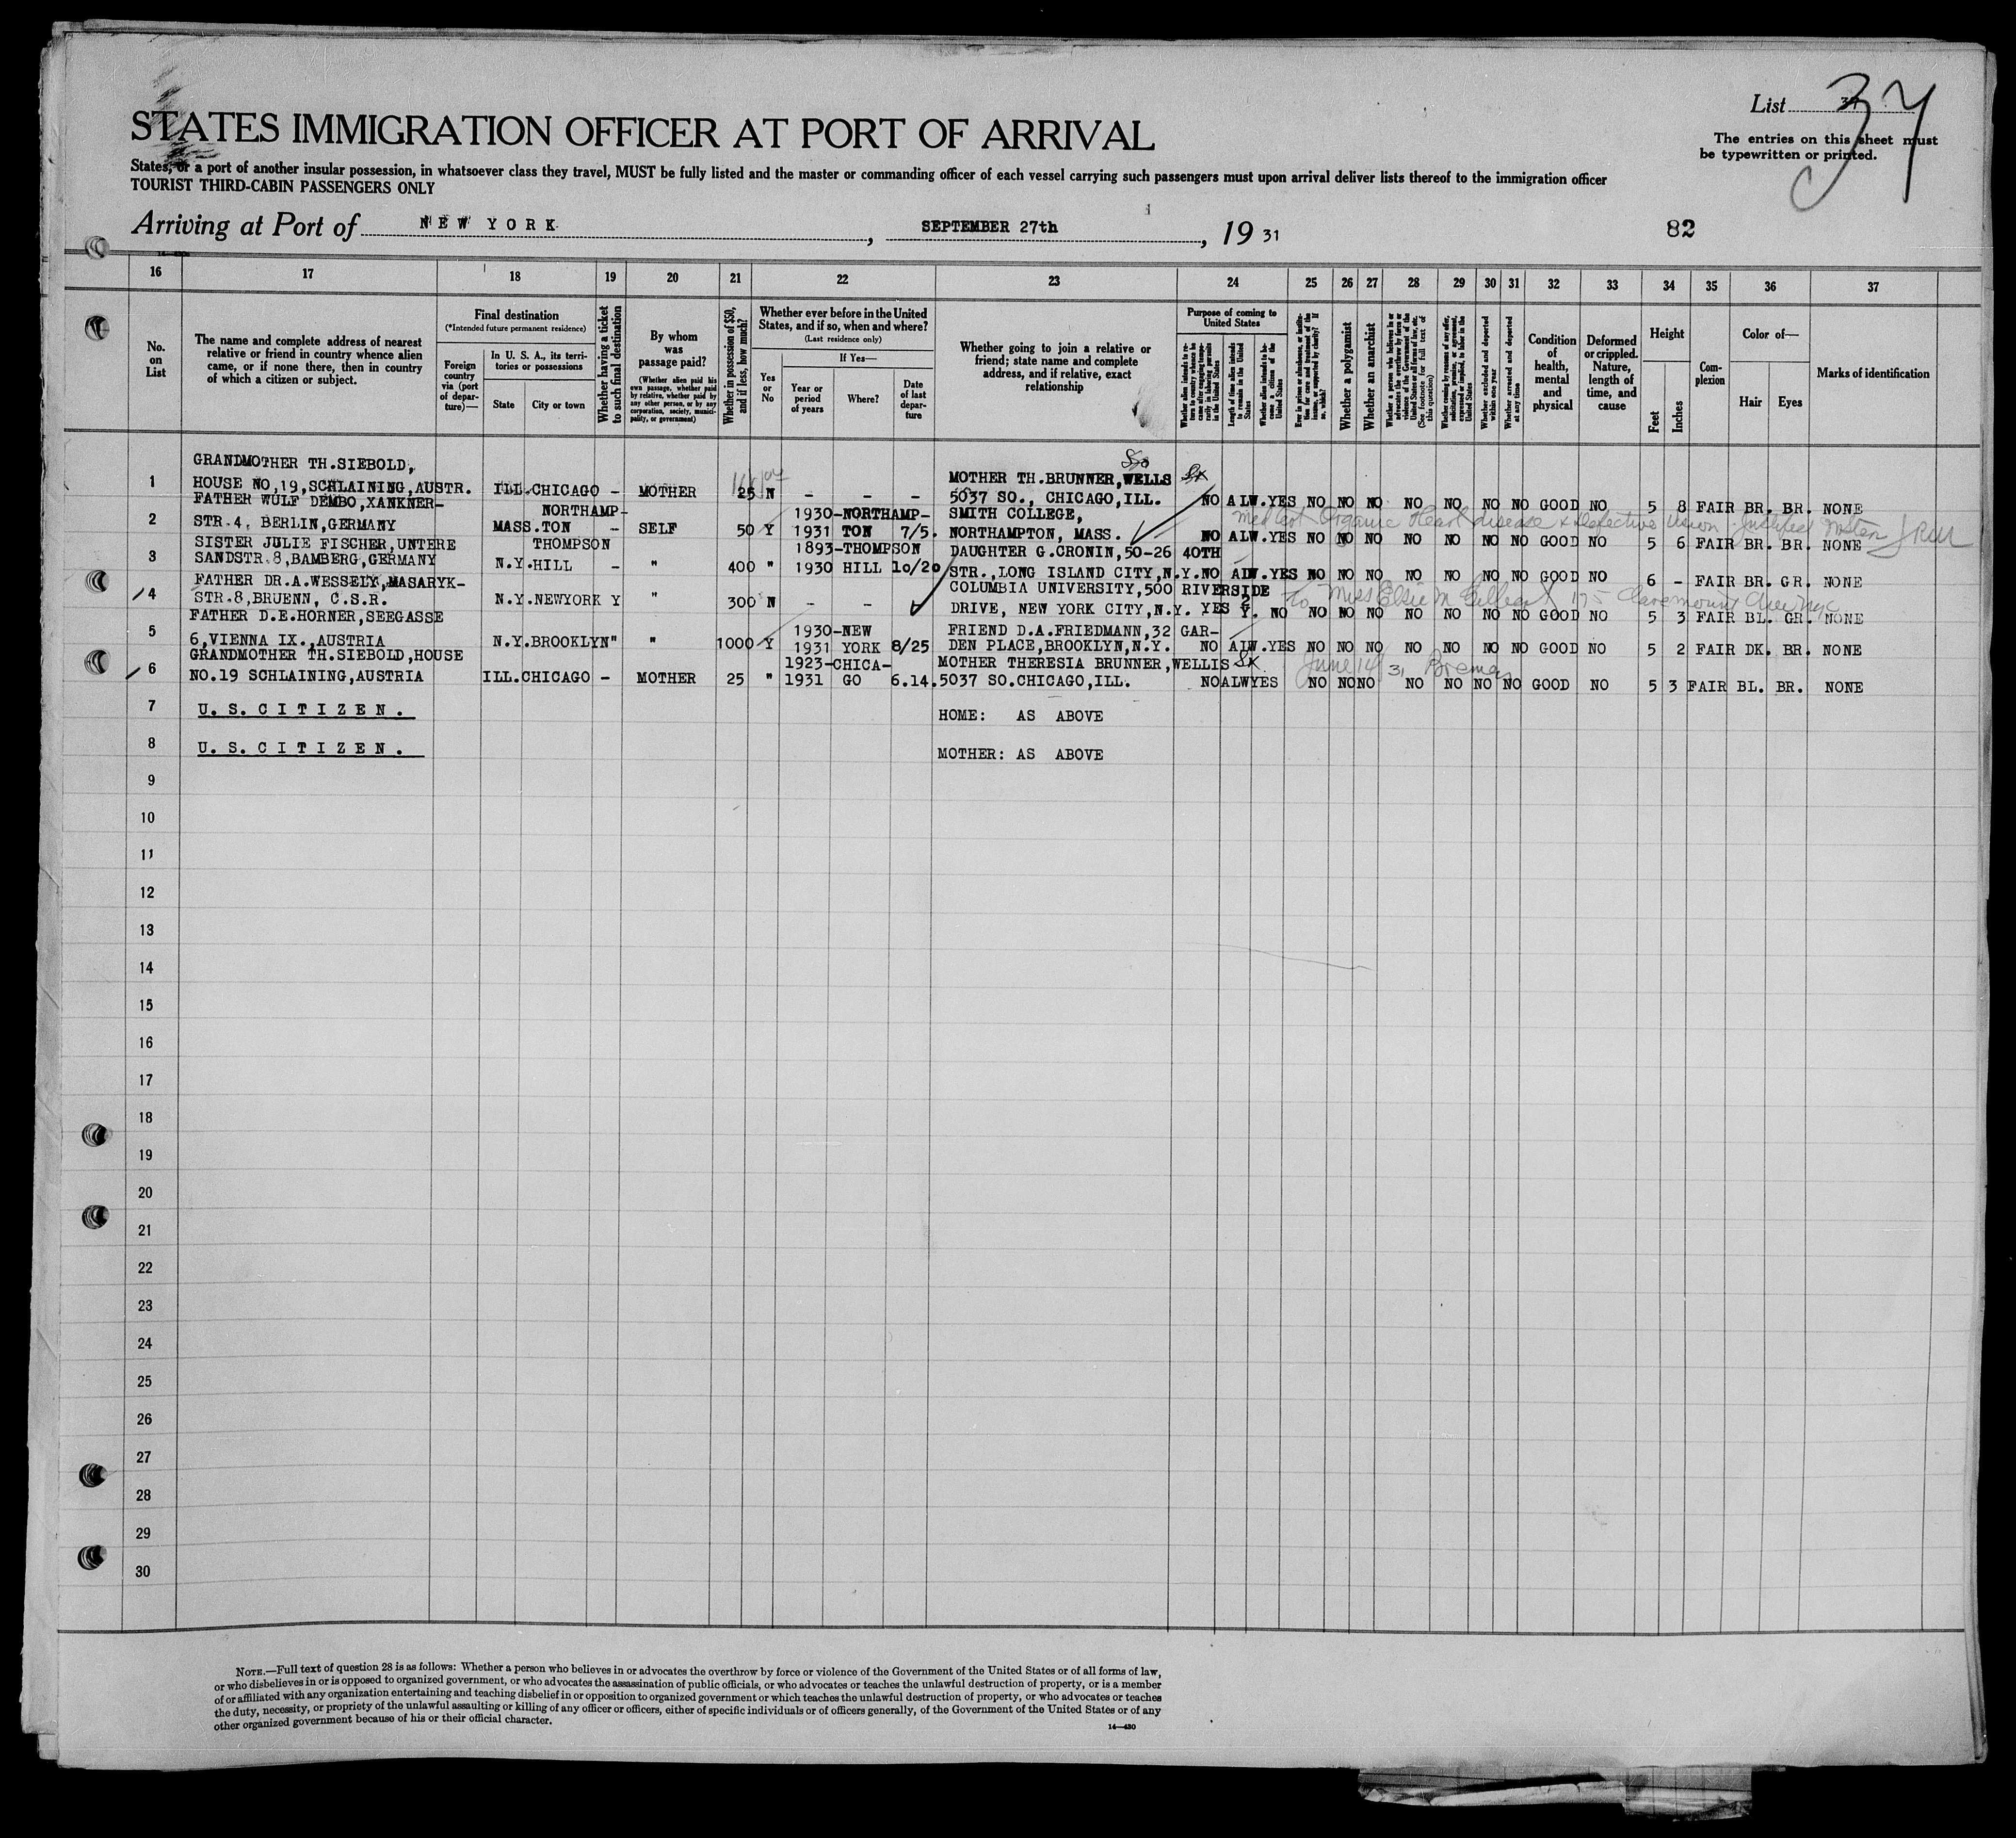 List 37
STATES IMMIGRATION OFFICER AT PORT OF ARRIVAL
The entries on this sheet must
be typewritten or printed.
States, or a port of another insular possession, in whatsoever class they travel, MUST be fully listed and the master or commanding officer of each vessel carrying such passengers must upon arrival deliver lists thereof to the immigration officer
TOURIST THIRD-CABIN PASSENGERS ONLY
Arriving at Port of NEW YORK, SEPTEMBER 27th, 19 31
82
16 17 18 19 20 21 22 23 24 25 26 27 28 29 30 31 32 33 34 35 36 37
No. on List
The name and complete address of nearest
relative or friend in country whence alien
came, or if none there, then in country
of which a citizen or subject.
Final destination
(*Intended future permanent residence)
Foreign country via (port of departure)—
In U. S. A., its territories or possessions
State
City or town
Whether having a ticket to such final destination
By whom was passage paid?
(Whether alien paid his own passage, whether paid by relative, whether paid by any other person, or by any corporation, society, municipality, or government)
Whether in possession of $50, and if less, how much?
Whether ever before in the United States, and if so, when and where?
(Last residence only)
Yes or No
If Yes—
Year or period of years
Where?
Date of last departure
Whether going to join a relative or
friend; state name and complete
address, and if relative, exact
relationship
Purpose of coming to United States
Whether alien intends to return to country whence he came after engaging temporarily in laboring pursuits in the United States
Length of time alien intends to remain in the United States
Whether alien intends to become a citizen of the United States
Ever in prison or almshouse, or institution for care and treatment of the insane, or supported by charity? If so, which?
Whether a polygamist
Whether an anarchist
(See footnote for full text of this question)
Whether excluded and deported within one year
Whether arrested and deported at any time
Condition of health, mental and physical
Deformed or crippled. Nature, length of time, and cause
Height
Feet
Inches
Complexion
Color of—
Hair
Eyes
Marks of identification
GRANDMOTHER TH.SIEBOLD,
1 HOUSE NO,19,SCHLAINING,AUSTR. ILL.CHICAGO - MOTHER 25 N - - - MOTHER TH.BRUNNER,WELLS
5037 SO., CHICAGO,ILL. NO ALW.YES NO NO NO NO NO NO NO GOOD NO 5 8 FAIR BR. BR. NONE
FATHER WULF DEMBO,XANKNER-
2 STR.4, BERLIN,GERMANY MASS. NORTHAMP-TON - SELF 50 Y 1930-1931 NORTHAMP-TON 7/5. SMITH COLLEGE,
NORTHAMPTON, MASS. NO ALW.YES NO NO NO NO NO NO NO GOOD NO 5 6 FAIR BR. BR. NONE
Med Cert Organic Heart disease & Defective vision
SISTER JULIE FISCHER,UNTERE
3 SANDSTR.8,BAMBERG,GERMANY N.Y. THOMPSON HILL - " 400 " 1893-1930 THOMPSON HILL 10/20 DAUGHTER G.CRONIN,50-26 40TH
STR.,LONG ISLAND CITY,N.Y. NO ALW.YES NO NO NO NO NO NO NO GOOD NO 6 - FAIR BR. GR. NONE
FATHER DR.A.WESSELY,MASARYK-
4 STR.8,BRUENN, C.S.R. N.Y.NEWYORK Y " 300 N - - COLUMBIA UNIVERSITY,500 RIVERSIDE
DRIVE, NEW YORK CITY,N.Y. YES Y. NO NO NO NO NO NO NO NO GOOD NO 5 3 FAIR BL. GR. NONE
to Miss Elsie M 175 Claremount Ave NYC
FATHER D.E.HORNER,SEEGASSE
5 6,VIENNA IX.,AUSTRIA N.Y.BROOKLYN " " 1000 Y 1930-1931 NEW YORK 8/25 FRIEND D.A.FRIEDMANN,32 GAR-
DEN PLACE,BROOKLYN,N.Y. NO ALW.YES NO NO NO NO NO NO NO GOOD NO 5 2 FAIR DK. BR. NONE
GRANDMOTHER TH.SIEBOLD,HOUSE
6 NO.19 SCHLAINING,AUSTRIA ILL.CHICAGO - MOTHER 25 " 1923-1931 CHICA-GO 6.14. MOTHER THERESIA BRUNNER,WELLIS
5037 SO.CHICAGO,ILL. NO ALW YES NO NO NO NO NO NO NO GOOD NO 5 3 FAIR BL. BR. NONE
June 14/31 Bremen
7 U. S. CITIZEN. HOME: AS ABOVE
8 U. S. CITIZEN. MOTHER: AS ABOVE
9
10
11
12
13
14
15
16
17
18
19
20
21
22
23
24
25
26
27
28
29
30
NOTE.—Full text of question 28 is as follows: Whether a person who believes in or advocates the overthrow by force or violence of the Government of the United States or of all forms of law,
or who disbelieves in or is opposed to organized government, or who advocates the assassination of public officials, or who advocates or teaches the unlawful destruction of property, or is a member
of or affiliated with any organization entertaining and teaching disbelief in or opposition to organized government or which teaches the unlawful destruction of property, or who advocates or teaches
the duty, necessity, or propriety of the unlawful assaulting or killing of any officer or officers, either of specific individuals or of officers generally, of the Government of the United States or of any
other organized government because of his or their official character.
14—430